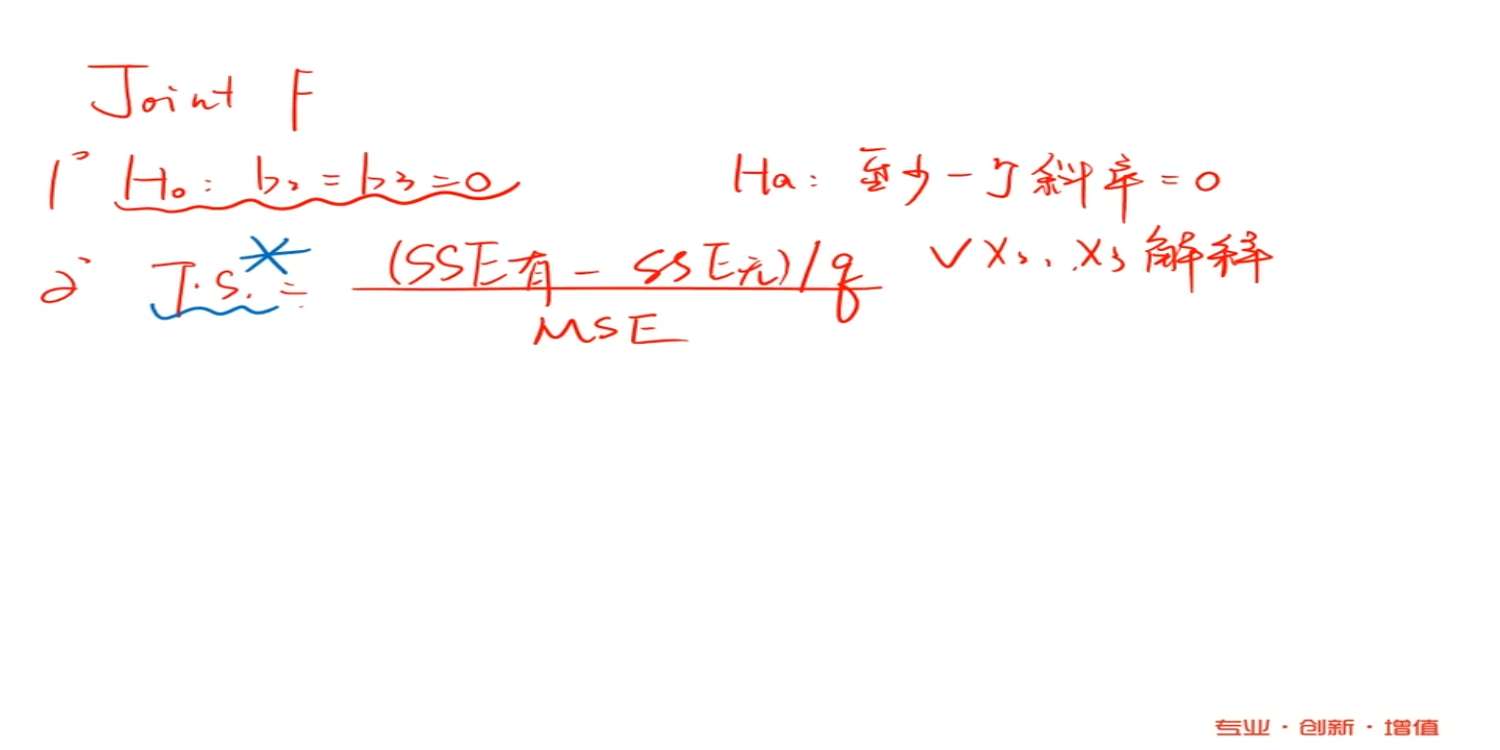 Joint F
1° H₀: b₂ = b₃ = 0 Ha: 至少一个斜率 = 0
2° T.S. = (SSE有 - SSE无)/q / MSE √ X₂、X₃ 解释
专业·创新·增值